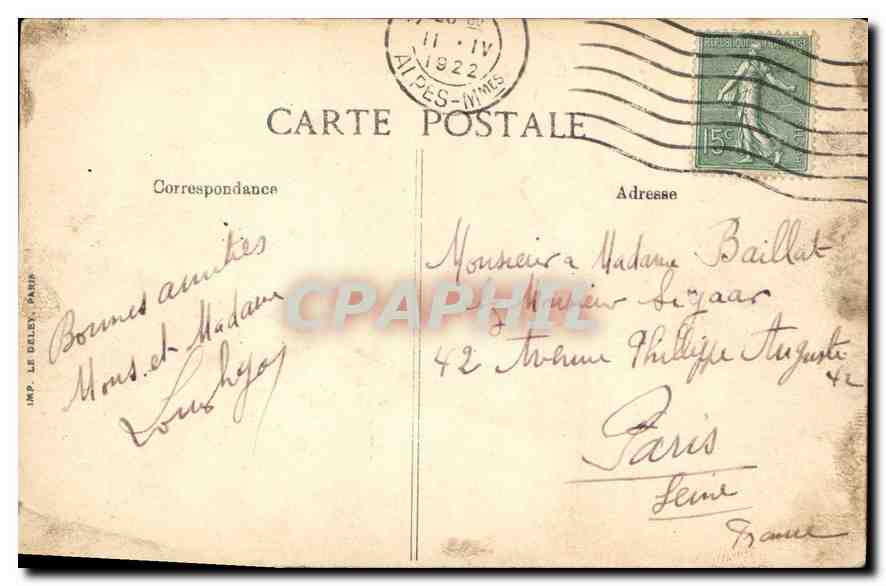 11 · IV
1922
ALPES-Mmes
REPUBLIQUE FRANÇAISE
15c
CARTE POSTALE
Correspondance
Adresse
Bonnes amitiés
Mons. et Madame
Louis
Monsieur & Madame Baillat
Monsieur
42 Avenue Philippe Auguste
42
Paris
Seine
France
IMP. LE DELEY, PARIS
CPAPHIL